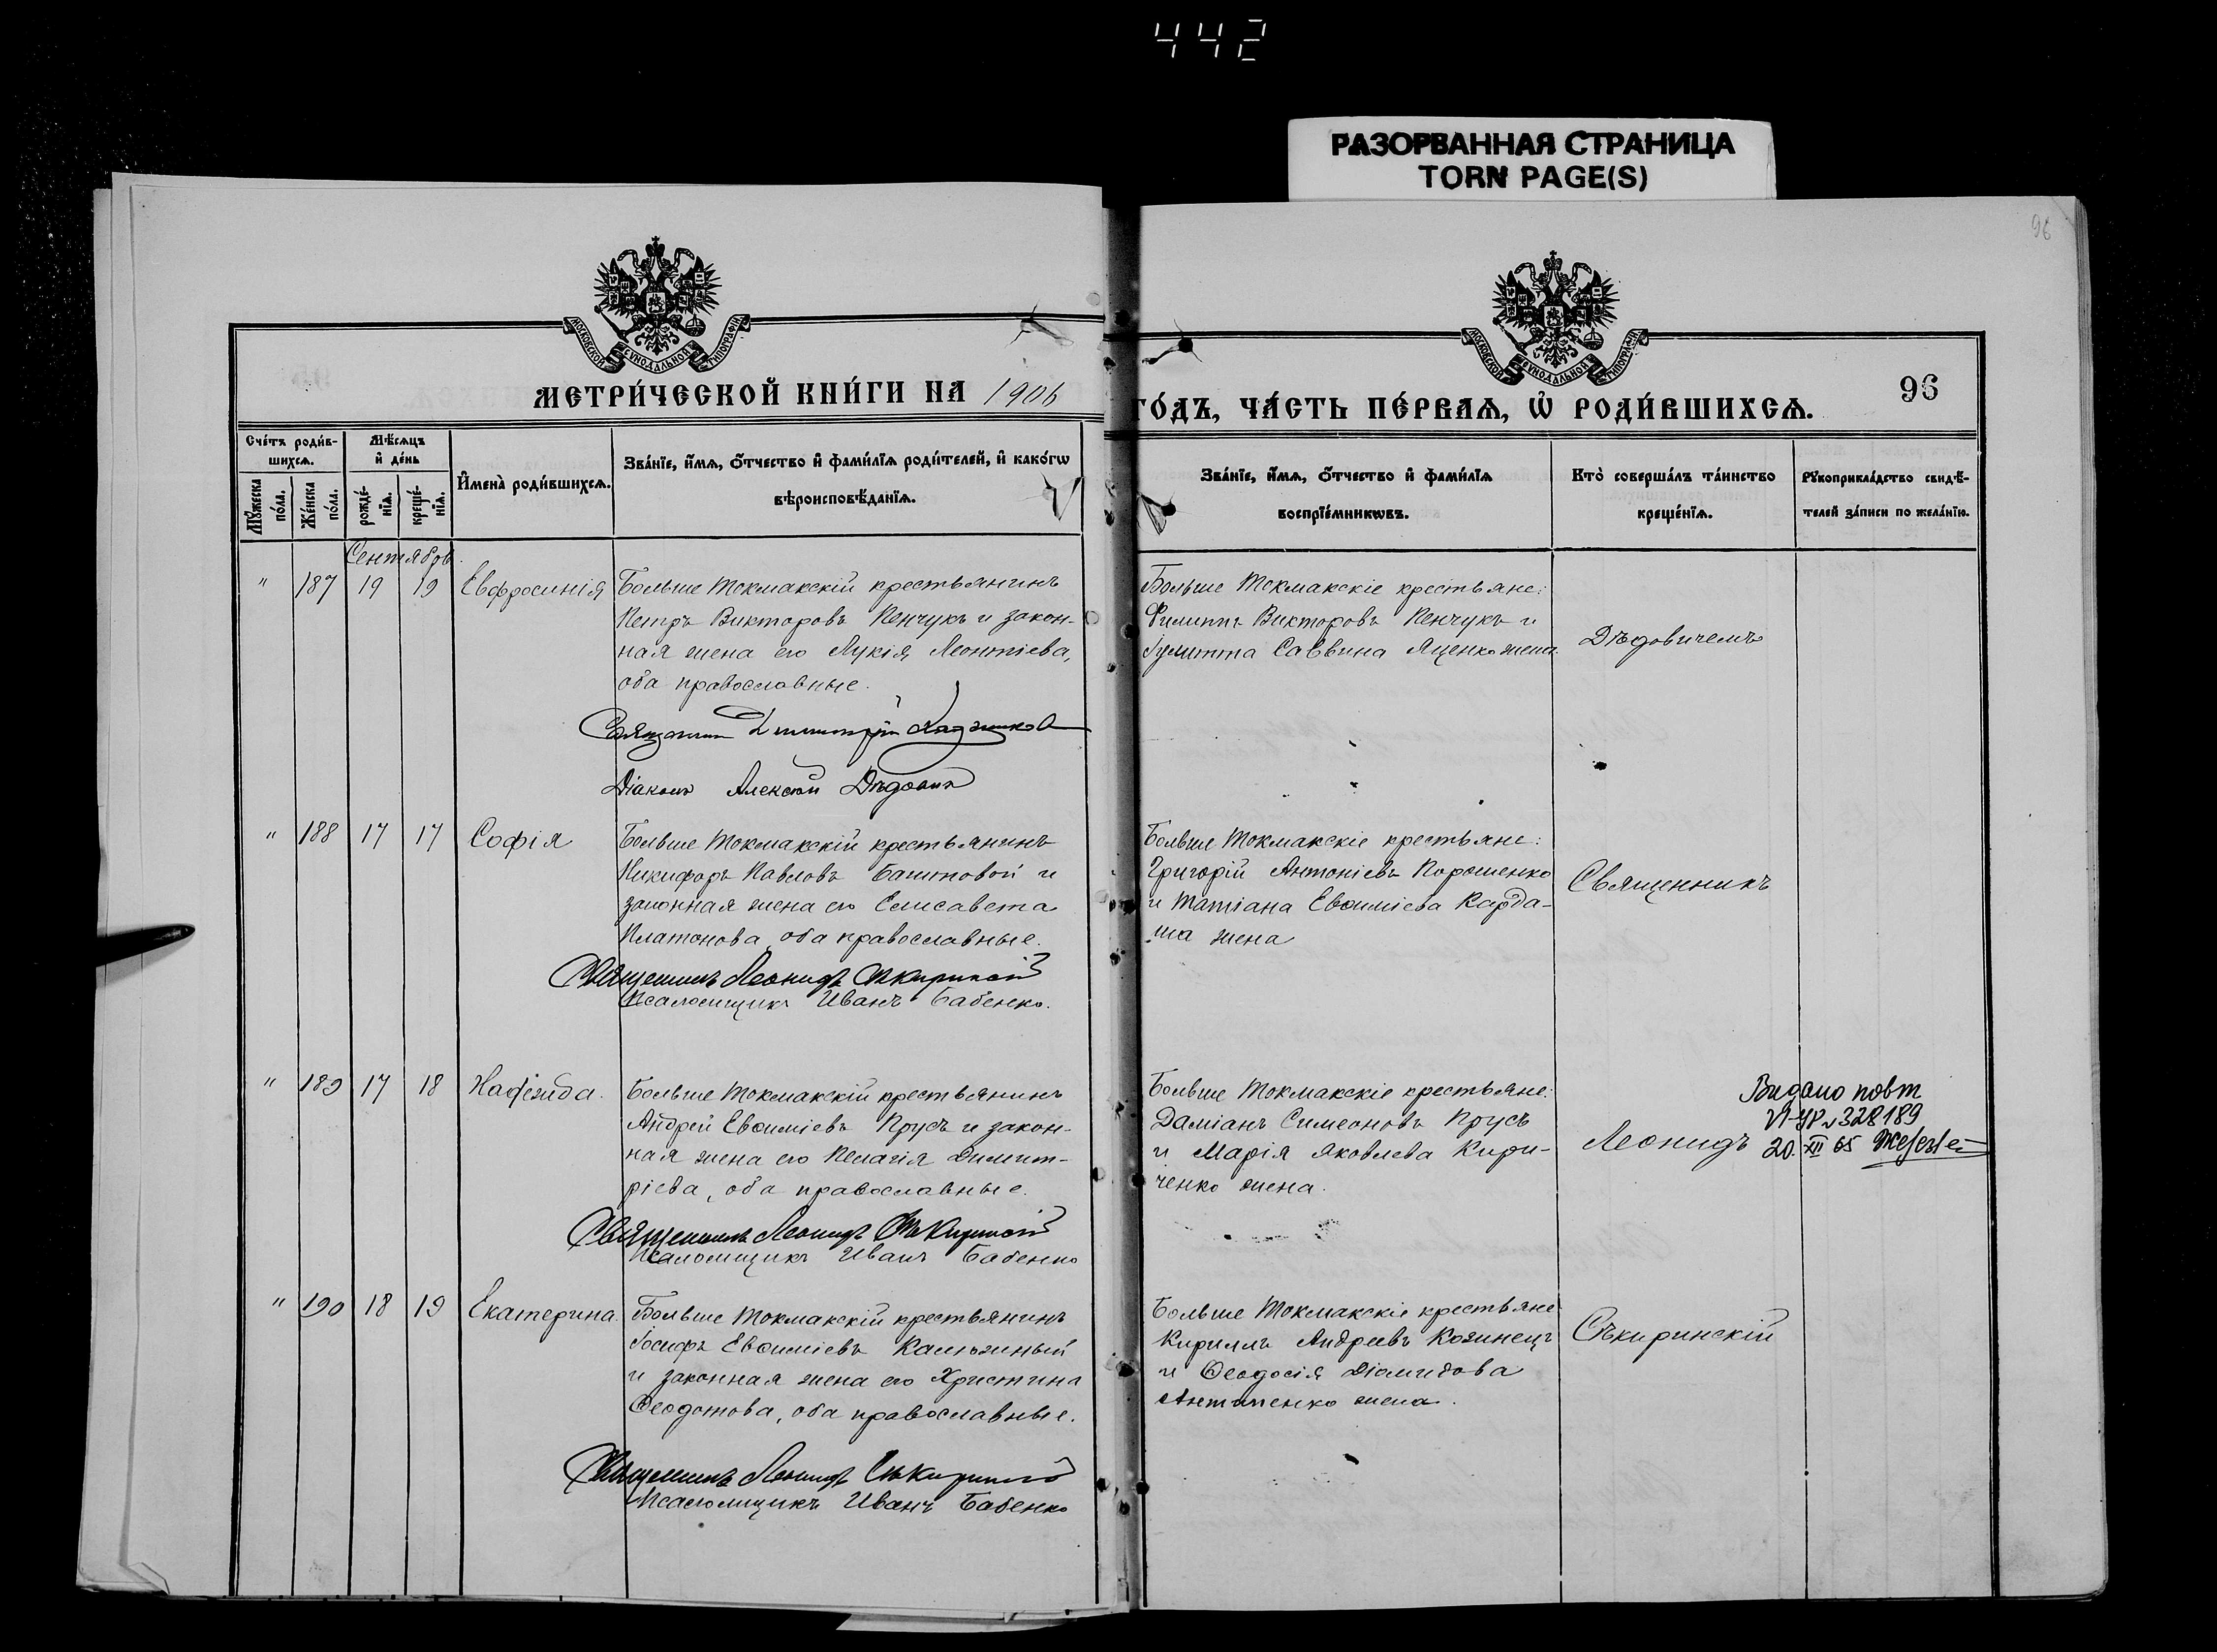 442
РАЗОРВАННАЯ СТРАНИЦА
TORN PAGE(S)
96
МОСКОВСКОЙ СѴНОДАЛЬНОЙ ТИПОГРАФІИ
МОСКОВСКОЙ СѴНОДАЛЬНОЙ ТИПОГРАФІИ
МЕТРИ́ЧЕСКОЙ КНИ́ГИ НА 1906
ГО́ДЪ, ЧА́СТЬ ПЕ́РВАѦ, Ѽ РОДИ́ВШИХСѦ.
96
Сче́тъ роди́в-
шихсѧ.
Мѣ́сѧцъ
и҆ де́нь
Мꙋ́жеска
по́ла.
Же́нска
по́ла.
рожде́-
нїѧ.
креще́-
нїѧ.
И҆мена̀ роди́вшихсѧ.
Зва́нїе, и҆́мѧ, ѻ҆́тчество и҆ фами́лїѧ роди́телей, и҆ како́гѡ
вѣроисповѣ́данїѧ.
Зва́нїе, и҆́мѧ, ѻ҆́тчество и҆ фами́лїѧ
воспрїе́мникѡвъ.
Кто̀ соверша́лъ та́инство
креще́нїѧ.
Рꙋкоприкла́дство свидѣ́-
телей за́писи по жела́нїю.
Сентябрь.
" 187 19 19 Евфросинія
Больше Токмакскій крестьянинъ
Петръ Викторовъ Пенчукъ и закон-
ная жена его Лукія Леонтіева,
оба православные.
Священникъ Димитрій
Діаконъ Алексѣй Дѣдовичъ
Больше Токмакскіе крестьяне:
Филиппъ Викторовъ Пенчукъ и
Іулитта Саввина Яценко жена.
Дѣдовичемъ
" 188 17 17 Софія
Больше Токмакскій крестьянинъ
Никифоръ Павловъ Баштовой и
законная жена его Елисавета
Платонова, оба православные.
Священникъ Леонидъ Сѣкиринскій
Псаломщикъ Иванъ Бабенко.
Больше Токмакскіе крестьяне:
Григорій Антоніевъ Порошенко
и Татіана Евѳиміева Карда-
ша жена
Священникъ
" 189 17 18 Надежда.
Больше Токмакскій крестьянинъ
Андрей Евѳиміевъ Прусъ и закон-
ная жена его Пелагія Димит-
ріева, оба православные.
Священникъ Леонидъ Сѣкиринскій
Псаломщикъ Иванъ Бабенко
Больше Токмакскіе крестьяне:
Даміанъ Симеоновъ Прусъ
и Марія Яковлева Кири-
ченко жена.
Леонидъ
Видано повт
328189
20. XII 65
" 190 18 19 Екатерина.
Больше Токмакскій крестьянинъ
Іосифъ Евѳиміевъ Калюжный
и законная жена его Христина
Ѳеодотова, оба православные.
Священникъ Леонидъ Сѣкиринскій
Псаломщикъ Иванъ Бабенко
Больше Токмакскіе крестьяне
Кириллъ Андреевъ Козинецъ
и Ѳеодосія Діамидова
Антипенко жена.
Сѣкиринскій